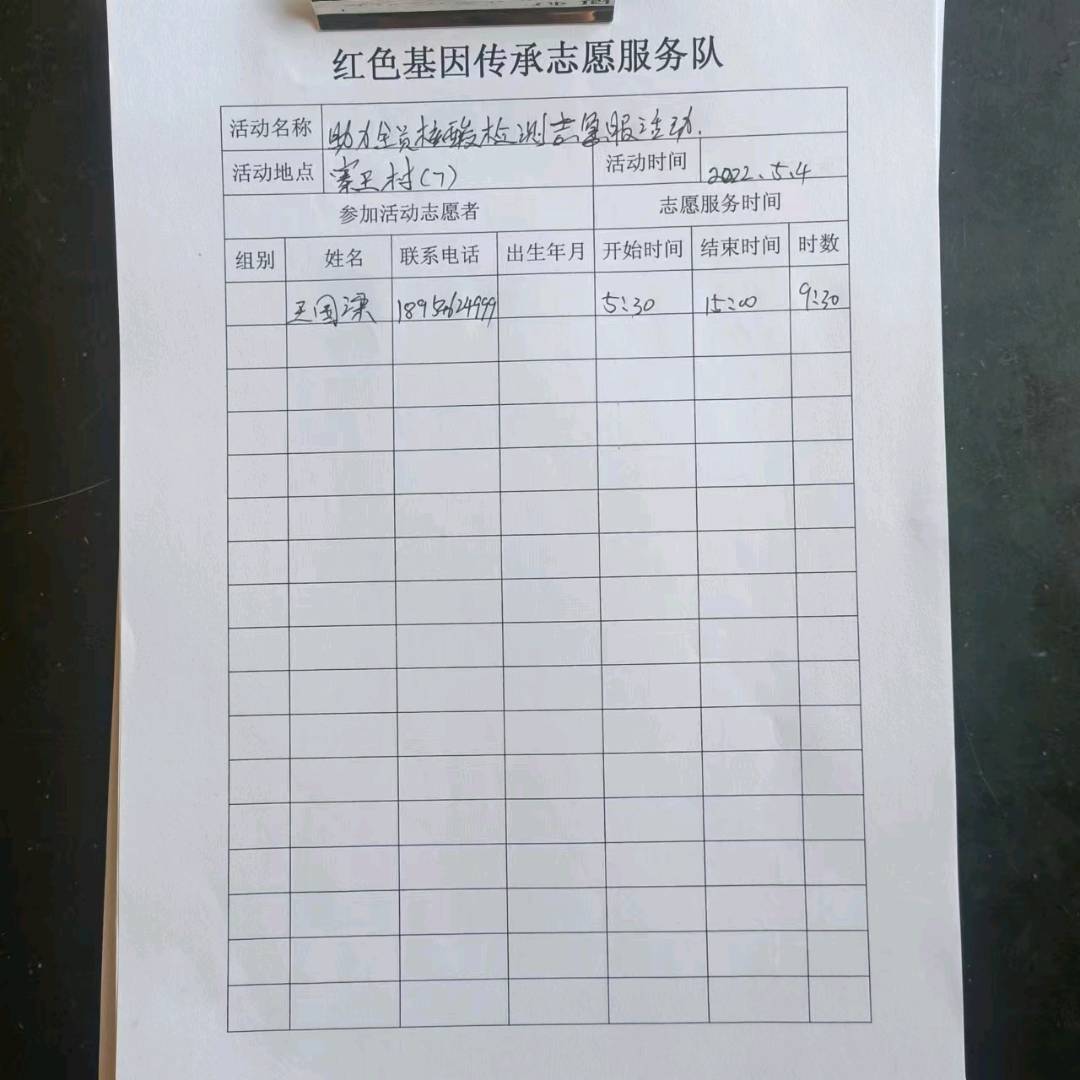 红色基因传承志愿服务队
活动名称 助力全员核酸检测志愿服活动.
活动地点 寨王村(7) 活动时间 2022.5.4
参加活动志愿者 志愿服务时间
组别 姓名 联系电话 出生年月 开始时间 结束时间 时数
王国梁 5:30 15:00 9:30